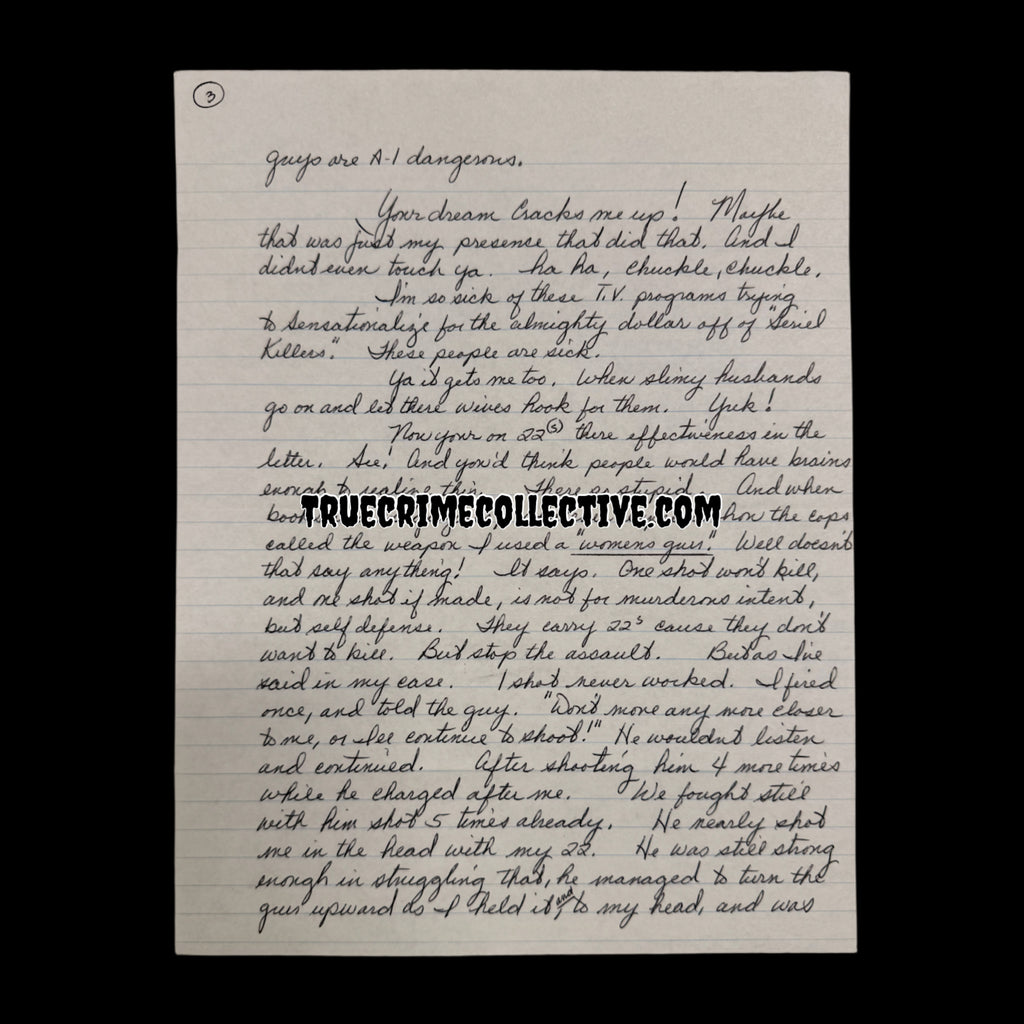 3
guys are A-1 dangerous.
Your dream Cracks me up! Maybe
that was just my presence that did that. And I
didnt even touch ya. ha ha, chuckle, chuckle.
I'm so sick of these T.V. programs trying
to sensationalize for the almighty dollar off of "Seriel
Killers." These people are sick.
Ya it gets me too. When slimy husbands
go on and let there wives hook for them. Yuk!
Now your on 22(s) there effectiveness in the
letter. See! And you'd think people would have brains
enough to realize this. There so stupid. And when
TRUECRIMECOLLECTIVE.COM
how the cops
called the weapon I used a "womens gun." Well doesn't
that say anything! It says. One shot won't kill,
and one shot if made, is not for murderous intent,
but self defense. They carry 22s cause they don't
want to kill. But stop the assault. But as I've
said in my case. 1 shot never worked. I fired
once, and told the guy. "Don't move any more closer
to me, or Ile continue to shoot!" He wouldnt listen
and continued. After shooting him 4 more times
while he charged after me. We fought still
with him shot 5 times already. He nearly shot
me in the head with my 22. He was still strong
enough in struggling that, he managed to turn the
gun upward as I held it and to my head, and was